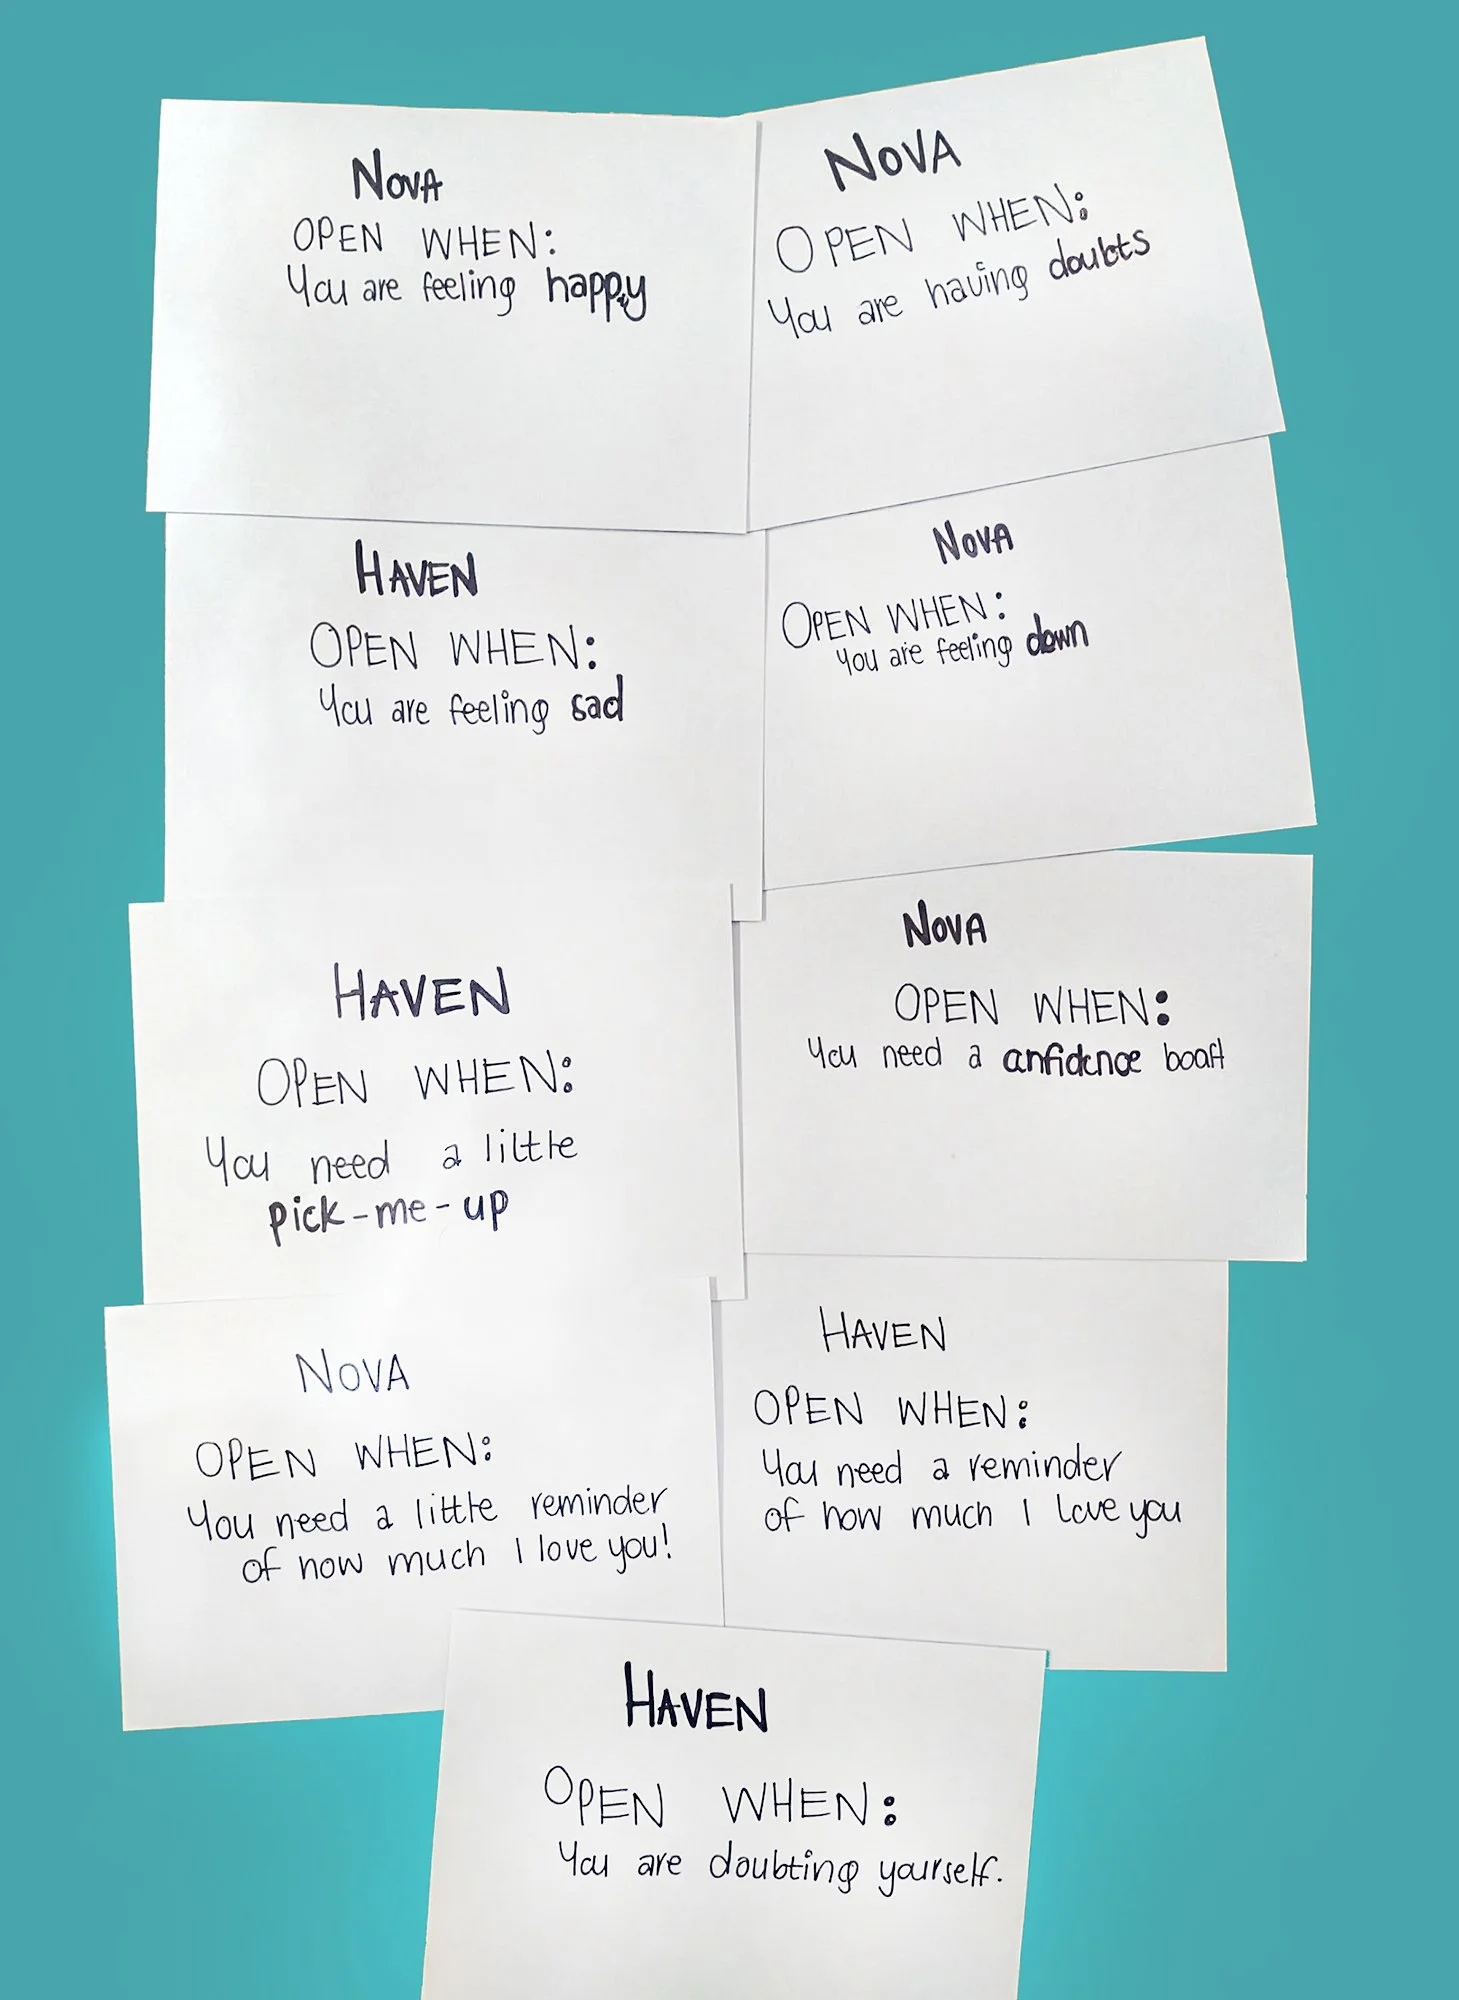 NOVA
OPEN WHEN:
You are feeling happy
NOVA
OPEN WHEN:
You are having doubts
HAVEN
OPEN WHEN:
You are feeling sad
NOVA
OPEN WHEN:
You are feeling down
HAVEN
OPEN WHEN:
You need a little
pick-me-up
NOVA
OPEN WHEN:
You need a confidence boost
NOVA
OPEN WHEN:
You need a little reminder
of how much I love you!
HAVEN
OPEN WHEN:
You need a reminder
of how much I love you
HAVEN
OPEN WHEN:
You are doubting yourself.